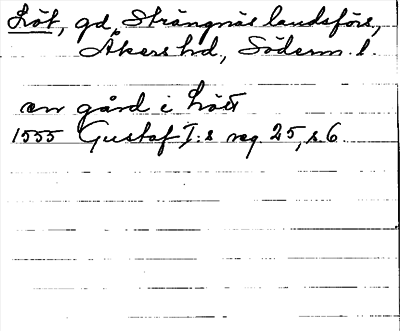 Löt, gd, Strängnäs landsförs,
Åkers hd, Söderm. l.
en gård i Lööt
1555 Gustaf I:s reg 25, s. 6